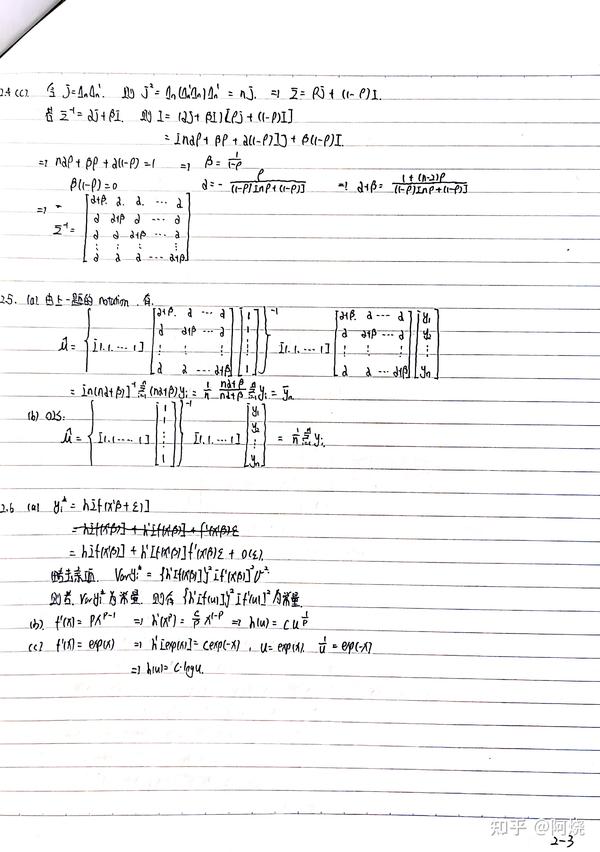 2.4 (c). 令 J=1ₙ1ₙ'. 则 J²=1ₙ(1ₙ'1ₙ)1ₙ' = nJ. ⇒ Σ = ρJ + (1-ρ)I.
若 Σ⁻¹ = αJ + βI. 则 I = (αJ + βI)[ρJ + (1-ρ)I]
= [nαρ + βρ + α(1-ρ)]J + β(1-ρ)I.
⇒ nαρ + βρ + α(1-ρ) = 1 ⇒ β = 1/(1-ρ)
β(1-ρ) = 0 α = - ρ/((1-ρ)[nρ+(1-ρ)]) ⇒ α+β = (1+(n-2)ρ)/((1-ρ)[nρ+(1-ρ)])
⇒
Σ⁻¹ = [α+β α α ⋯ α
α α+β α ⋯ α
α α α+β ⋯ α
⋮ ⋮ ⋮ ⋮
α α α ⋯ α+β]
2.5. (a) 由上一题的 notation. 有.
û = { [1,1,⋯,1] [α+β α ⋯ α; α α+β ⋯ α; ⋮ ⋮ ⋮; α α ⋯ α+β] [1; 1; ⋮; 1] }⁻¹ [1,1,⋯,1] [α+β α ⋯ α; α α+β ⋯ α; ⋮ ⋮ ⋮; α α ⋯ α+β] [y₁; y₂; ⋮; yₙ]
= [n(nα+β)]⁻¹ Σᵢ₌₁ⁿ (nα+β)yᵢ = 1/n (nα+β)/(nα+β) Σᵢ₌₁ⁿ yᵢ = ȳₙ
(b) OLS:
û = { [1,1,⋯,1] [1; 1; ⋮; 1] }⁻¹ [1,1,⋯,1] [y₁; y₂; ⋮; yₙ] = 1/n Σᵢ₌₁ⁿ yᵢ
2.6 (a) yᵢ* = h[f(x'β + ε)]
= h[f(x'β)] + h'[f(x'β)] + f'(x'β)ε
= h[f(x'β)] + h'[f(x'β)] f'(x'β)ε + o(ε).
略去余项. Var yᵢ* = {h'[f(x'β)]}² [f'(x'β)]² σ².
则若 Var yᵢ* 为常量. 则有 {h'[f(u)]}² [f'(u)]² 为常量
(b) f'(x) = px^(p-1) ⇒ h'(x^p) = c/p x^(1-p) ⇒ h(u) = c u^(1/p)
(c) f'(x) = exp(x) ⇒ h'[exp(x)] = c exp(-x), u = exp(x). 1/u = exp(-x)
⇒ h(u) = c·log u.
知乎 @阿烧
2-3